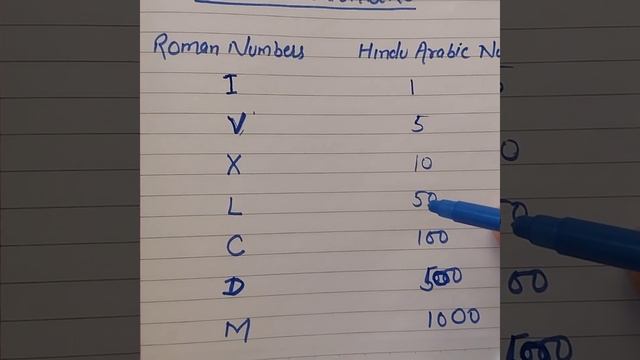 Roman Numbers Hindu Arabic
I 1
V 5
X 10
L 50
C 100
D 500
M 1000